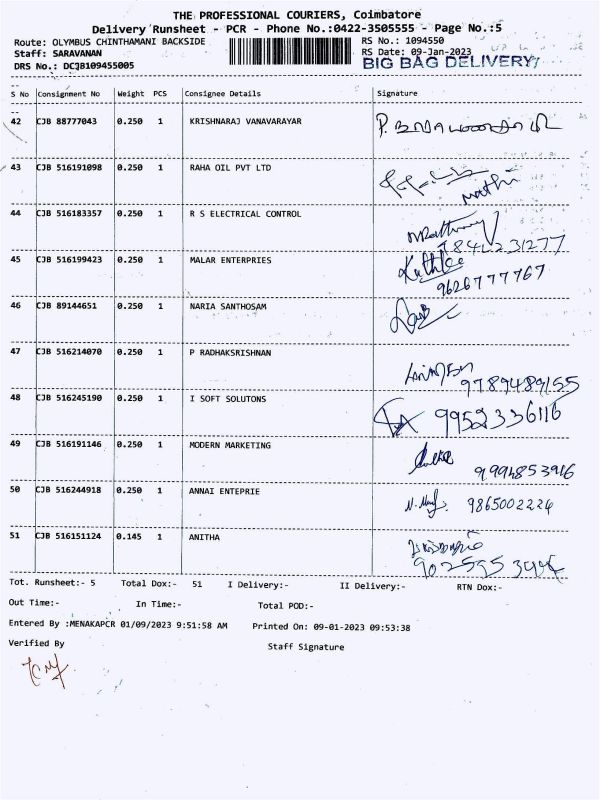 THE PROFESSIONAL COURIERS, Coimbatore
Delivery Runsheet - PCR - Phone No.:0422-3505555 - Page No.:5
Route: OLYMBUS CHINTHAMANI BACKSIDE RS No.: 1094550
Staff: SARAVANAN RS Date: 09-Jan-2023
DRS No.: DCJB109455005 BIG BAG DELIVERY
S No Consignment No Weight PCS Consignee Details Signature
42 CJB 88777043 0.250 1 KRISHNARAJ VANAVARAYAR
43 CJB 516191098 0.250 1 RAHA OIL PVT LTD
Mathi
44 CJB 516183357 0.250 1 R S ELECTRICAL CONTROL
45 CJB 516199423 0.250 1 MALAR ENTERPRIES
9626777767
46 CJB 89144651 0.250 1 NARIA SANTHOSAM
47 CJB 516214070 0.250 1 P RADHAKSRISHNAN
9789489155
48 CJB 516245190 0.250 1 I SOFT SOLUTONS
9952336116
49 CJB 516191146 0.250 1 MODERN MARKETING
9994853916
50 CJB 516244918 0.250 1 ANNAI ENTEPRIE
9865002224
51 CJB 516151124 0.145 1 ANITHA
Tot. Runsheet:- 5 Total Dox:- 51 I Delivery:- II Delivery:- RTN Dox:-
Out Time:- In Time:- Total POD:-
Entered By :MENAKAPCR 01/09/2023 9:51:58 AM Printed On: 09-01-2023 09:53:38
Verified By Staff Signature